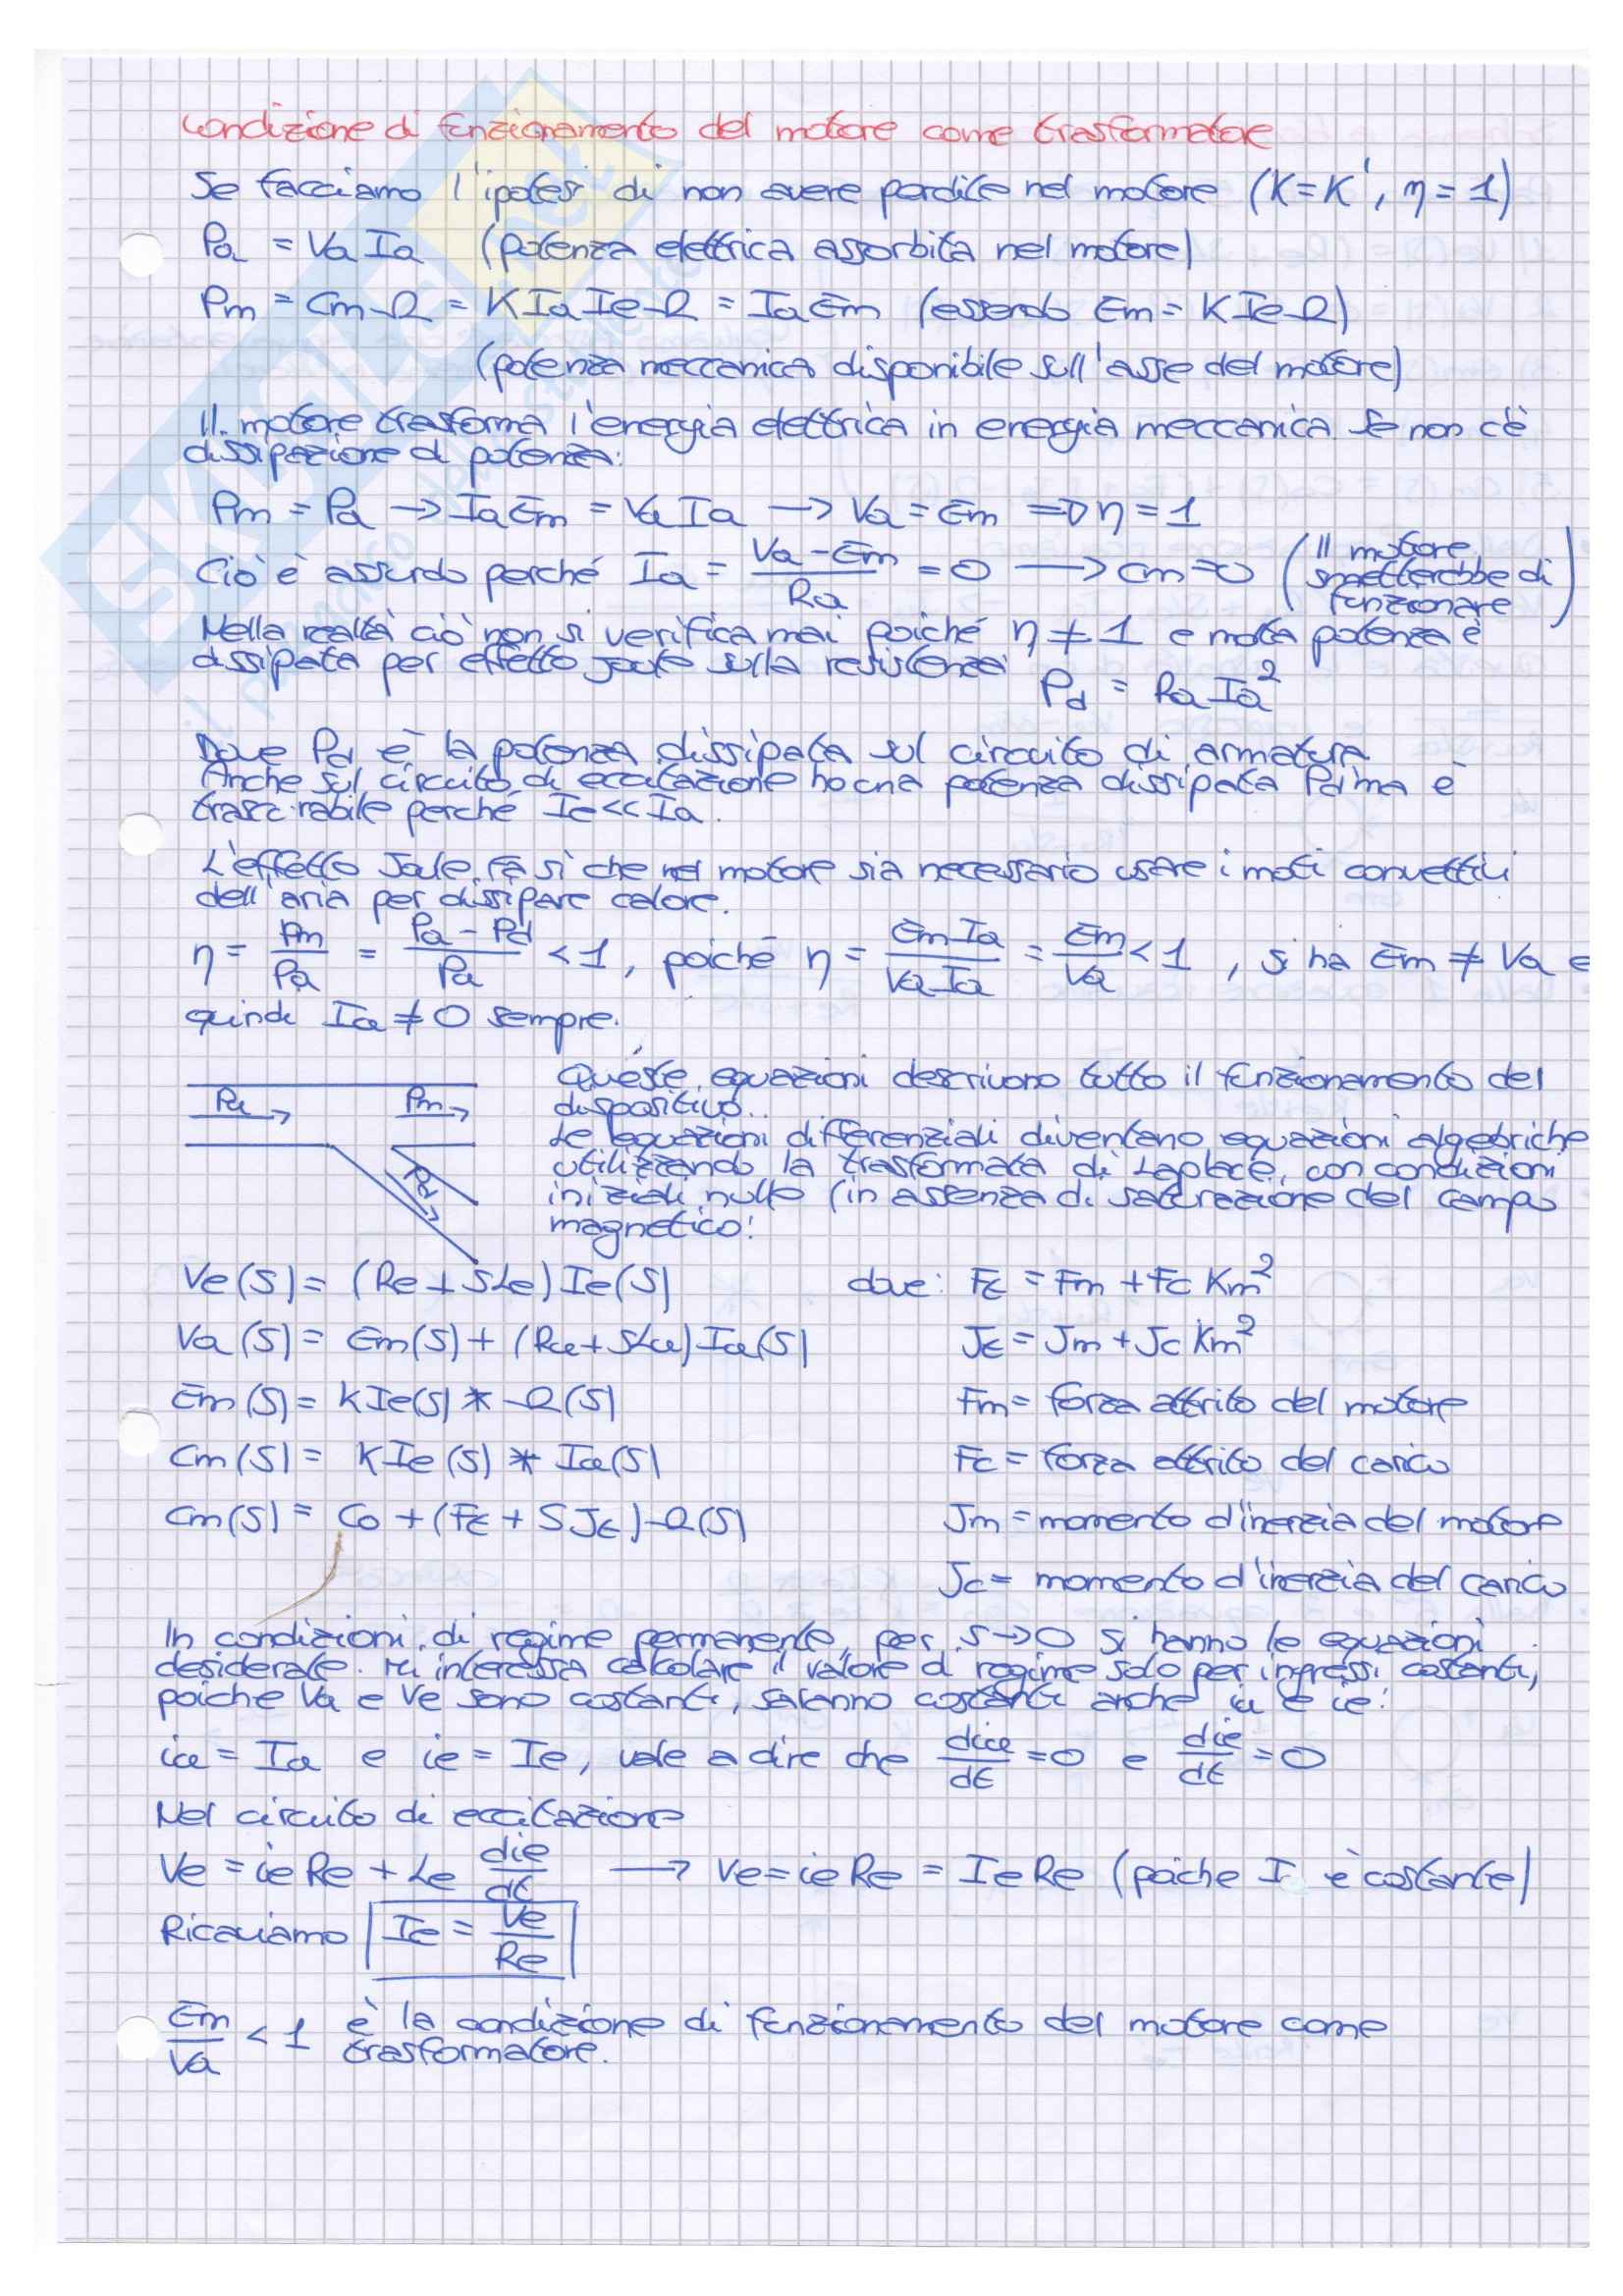 condizione di funzionamento del motore come trasformatore
Se facciamo l'ipotesi di non avere perdite nel motore (K=K', η=1)
Pa = Va Ia (potenza elettrica assorbita nel motore)
Pm = Cm Ω = K Ia Ie Ω = Ia Em (essendo Em = K Ie Ω)
(potenza meccanica disponibile sull'asse del motore)
Il motore trasforma l'energia elettrica in energia meccanica. Se non c'è
dissipazione di potenza:
Pm = Pa → Ia Em = Va Ia → Va = Em ⇒ η = 1
Ciò è assurdo perché Ia = (Va - Em)/Ra = 0 → Cm = 0 (Il motore smetterebbe di funzionare)
Nella realtà ciò non si verifica mai poiché η ≠ 1 e molta potenza è
dissipata per effetto joule sulla resistenza
Pd = Ra Ia²
Dove Pd è la potenza dissipata sul circuito di armatura
Anche sul circuito di eccitazione ho una potenza dissipata Pd' ma è
trascurabile perché Ie << Ia.
L'effetto Joule fa sì che nel motore sia necessario usare i moti convettivi
dell'aria per dissipare calore.
η = Pm/Pa = (Pa - Pd)/Pa < 1, poiché η = Em Ia/Va Ia = Em/Va < 1, si ha Em ≠ Va e
quindi Ia ≠ 0 sempre.
Pa → Pm →
Pd →
Queste equazioni descrivono tutto il funzionamento del
dispositivo.
Le equazioni differenziali diventano equazioni algebriche
utilizzando la trasformata di Laplace, con condizioni
iniziali nulle (in assenza di saturazione del campo
magnetico:
Ve(S) = (Re + SLe) Ie(S) dove: Ft = Fm + Fc Km²
Va(S) = Em(S) + (Ra + SLa) Ia(S) Jt = Jm + Jc Km²
Em(S) = K Ie(S) * Ω(S) Fm = forza attrito del motore
Cm(S) = K Ie(S) * Ia(S) Fc = forza attrito del carico
Cm(S) = Co + (Ft + SJt) Ω(S) Jm = momento d'inerzia del motore
Jc = momento d'inerzia del carico
In condizioni di regime permanente, per s→0 si hanno le equazioni
desiderate. Mi interessa calcolare il valore di regime solo per ingressi costanti,
poiche Va e Ve sono costanti, saranno costanti anche ia e ie:
ia = Ia e ie = Ie, vale a dire che dia/dt = 0 e die/dt = 0
Nel circuito di eccitazione
Ve = ie Re + Le die/dt → Ve = ie Re = Ie Re (poiche I è costante)
Ricaviamo Ie = Ve/Re
Em/Va < 1 è la condizione di funzionamento del motore come
trasformatore.
SKUOLA.net
il paradiso dello studente